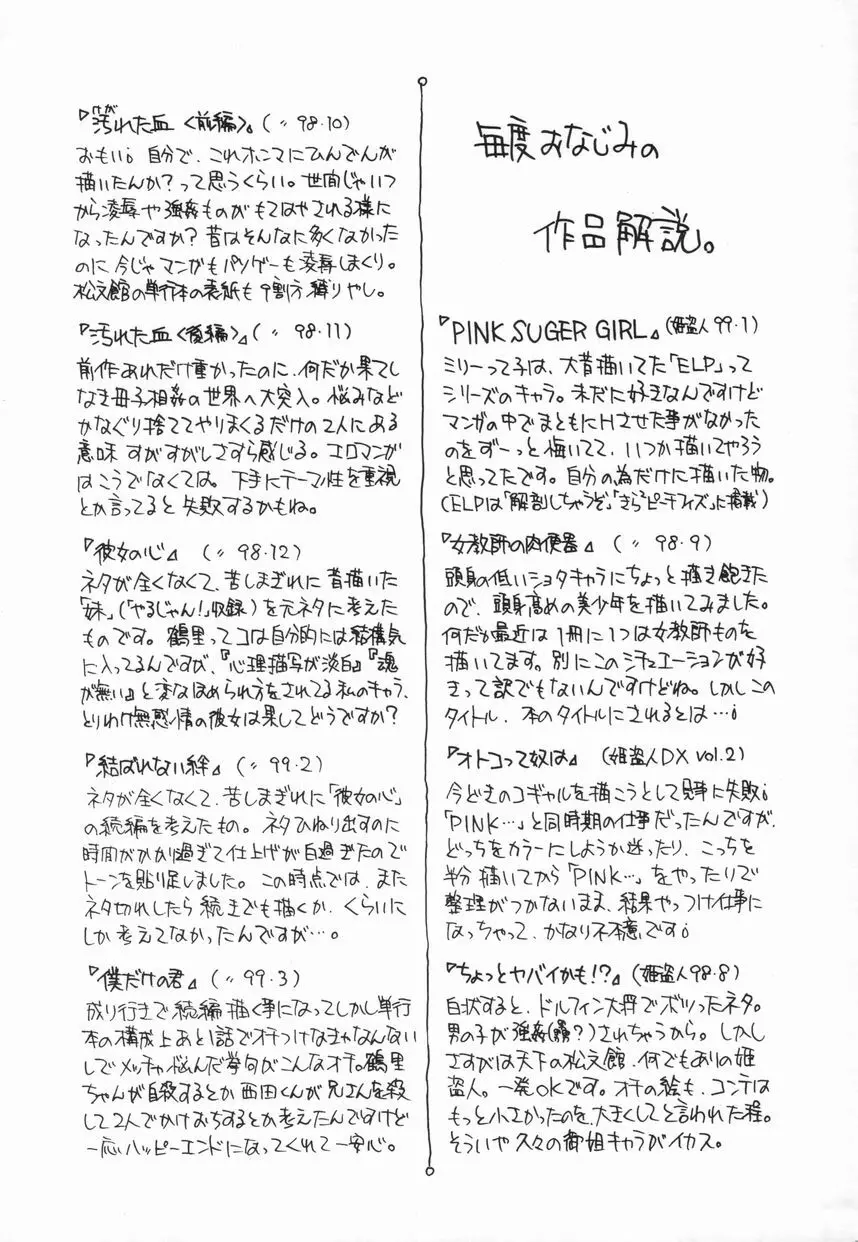 毎度おなじみの
作品解説。
『PINK SUGER GIRL』(姫盗人99・1)
ミリーって子は、大昔描いてた「ELP」って
シリーズのキャラ。未だに好きなんですけど
マンガの中でまともにHさせた事がなかった
のをずーっと悔いてて、いつか描いてやろう
と思ってたです。自分の為だけに描いた物。
(ELPは「解剖しちゃうぞ」「きらきらピーチフィズ」に掲載)
『女教師の肉便器』(〃 98・9)
頭身の低いショタキャラにちょっと描き飽きた
ので、頭身高めの美少年を描いてみました。
何だか最近は1冊に1つは女教師ものを
描いてます。別にこのシチュエーションが好
きって訳でもないんですけどね。しかしこの
タイトル、本のタイトルにされるとは…!
『オトコって奴は』(姫盗人DX vol.2)
今どきのコギャルを描こうとして見事に失敗!
「PINK…」と同時期の仕事だったんですが、
どっちをカラーにしようか迷ったり、こっちを
半分描いてから「PINK…」をやったりで
整理がつかないまま、結果やっつけ仕事に
なっちゃって、かなり不本意です!
『ちょっとヤバイかも!?』(姫盗人98・8)
白状すると、ドルフィン大将でボツったネタ。
男の子が強姦(?)されちゃうから。しかし
さすがは天下の松文館、何でもありの姫
盗人。一発OKです。オチの絵も、コンテは
もっと小さかったのを、大きくしてと言われた程。
そういや久々の御姐キャラがイカス。
『汚れた血<前編>』(〃 98・10)
おもい! 自分で、これホンマにひんでんが
描いたんか?って思うくらい。世間じゃいつ
から凌辱や強姦ものがもてはやされる様に
なったんですか?昔はそんなに多くなかった
のに今じゃマンガもパソゲーも凌辱しまくり。
松文館の単行本の表紙も9割方縛りやし。
『汚れた血<後編>』(〃 98・11)
前作あれだけ重かったのに、何だか果てし
なき母子相姦の世界へ大突入。悩みなど
かなぐり捨ててやりまくるだけの2人にある
意味すがすがしさすら感じる。エロマンガ
はこうでなくては。下手にテーマ性を重視
とか言ってると失敗するかもね。
『彼女の心』(〃 98・12)
ネタが全くなくて、苦しまぎれに昔描いた
「妹」(「やるじゃん!」収録)を元ネタに考えた
ものです。鶴里ってコは自分的には結構気
に入ってるんですが、『心理描写が淡白』『魂
が無い』と変なほめられ方をされてる私のキャラ、
とりわけ無感情の彼女は果してどうですか?
『結ばれない絆』(〃 99・2)
ネタが全くなくて、苦しまぎれに「彼女の心」
の続編を考えたもの。ネタひねり出すのに
時間がかかり過ぎて仕上げが白過ぎたので
トーンを貼り足しました。この時点では、また
ネタ切れしたら続きでも描くか、くらいに
しか考えてなかったんですが…。
『僕だけの君』(〃 99・3)
成り行きで続編描く事になってしかし単行
本の構成上あと1話でオチつけなきゃなんない
しでメッチャ悩んだ挙句がこんなオチ。鶴里
ちゃんが自殺するとか西田くんが兄さんを殺
して2人でかけおちするとか考えたんですけど
一応ハッピーエンドになってくれて一安心。